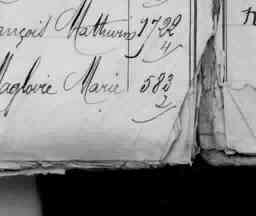 ançois Mathurin 1722
4
Magloire Marie 583
2